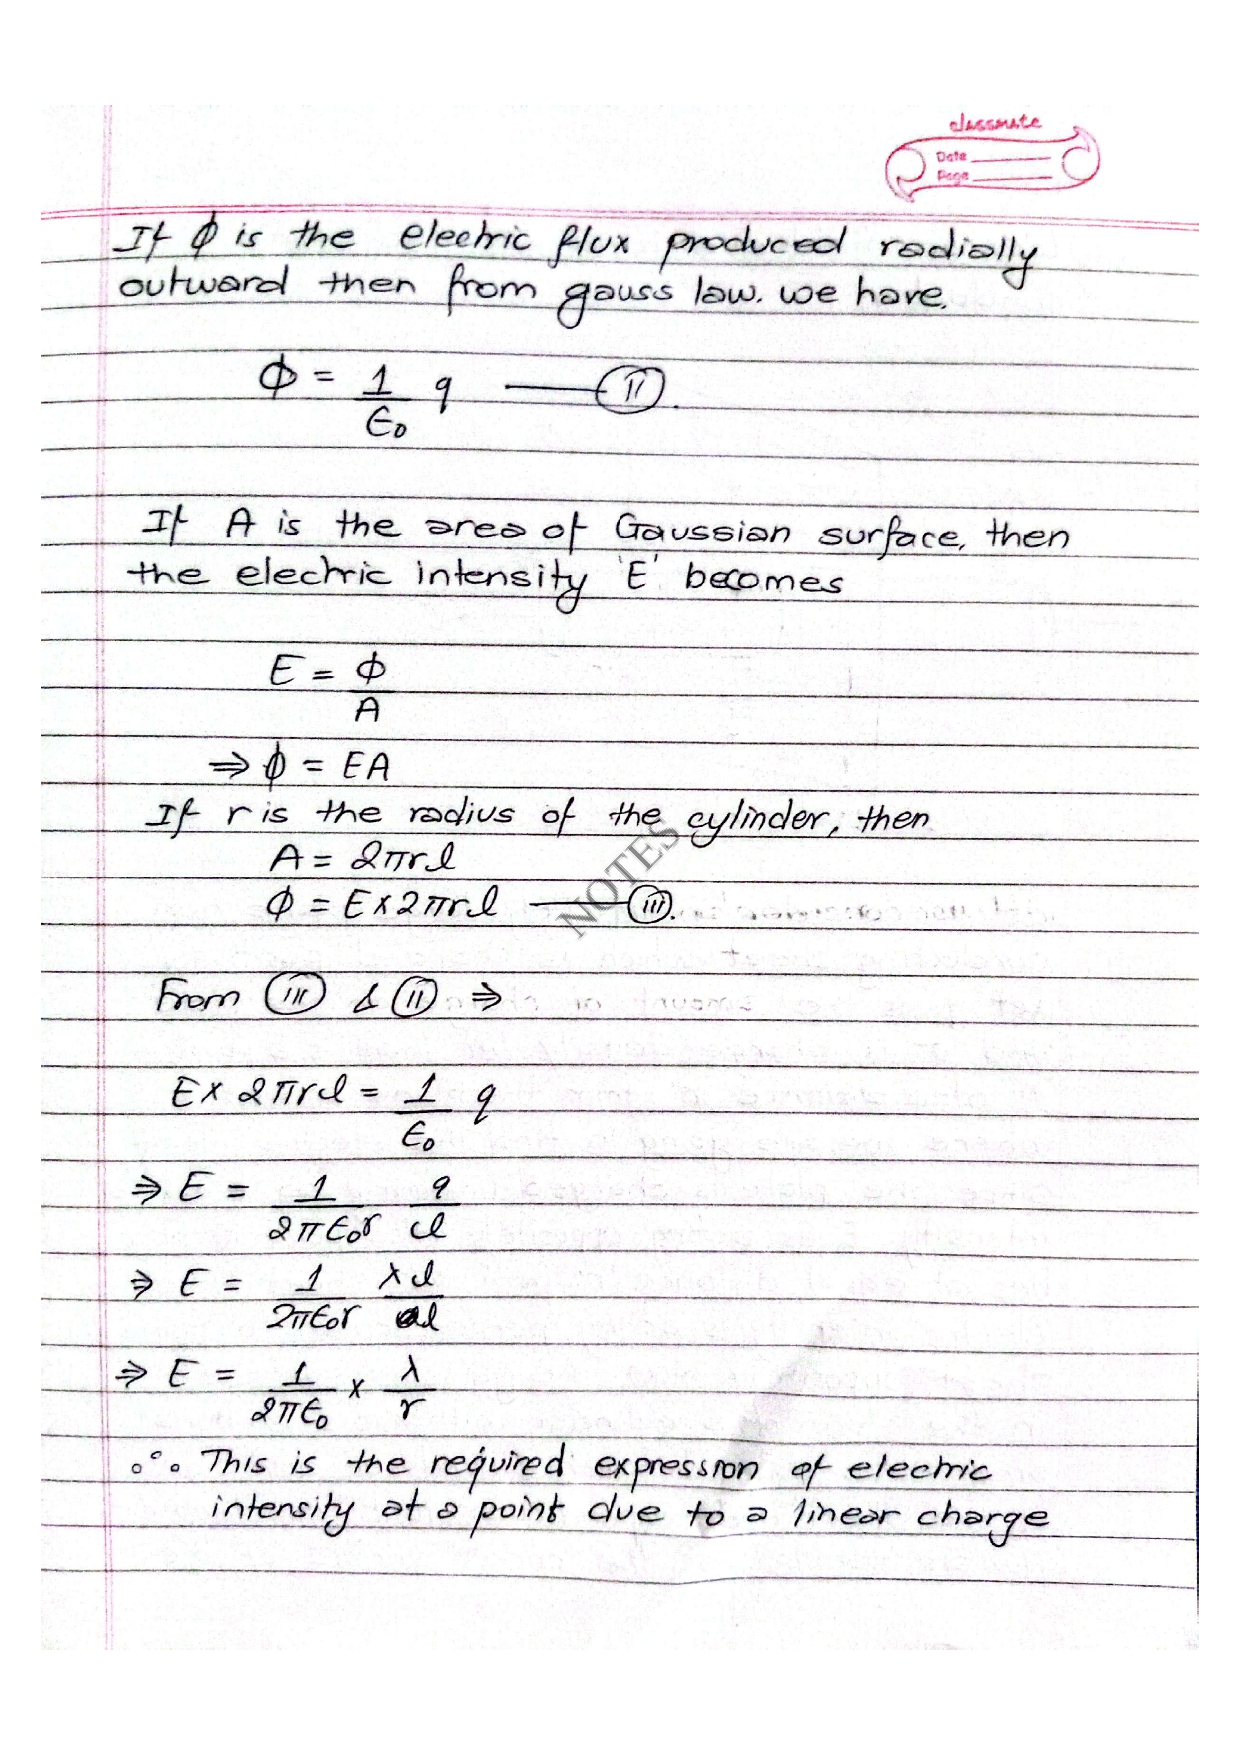 classmate
Date
Page
If ϕ is the electric flux produced radially
outward then from gauss law. we have.
ϕ = 1/ε₀ q —— (II).
If A is the area of Gaussian surface, then
the electric intensity 'E' becomes
E = ϕ/A
⇒ ϕ = EA
If r is the radius of the cylinder, then
A = 2πrl
ϕ = E×2πrl —— (III).
NOTES
From (III) & (II) ⇒
E× 2πrl = 1/ε₀ q
⇒ E = 1/2πε₀r q/l
⇒ E = 1/2πε₀r λl/l
⇒ E = 1/2πε₀ × λ/r
∴ This is the required expression of electric
intensity at a point due to a linear charge